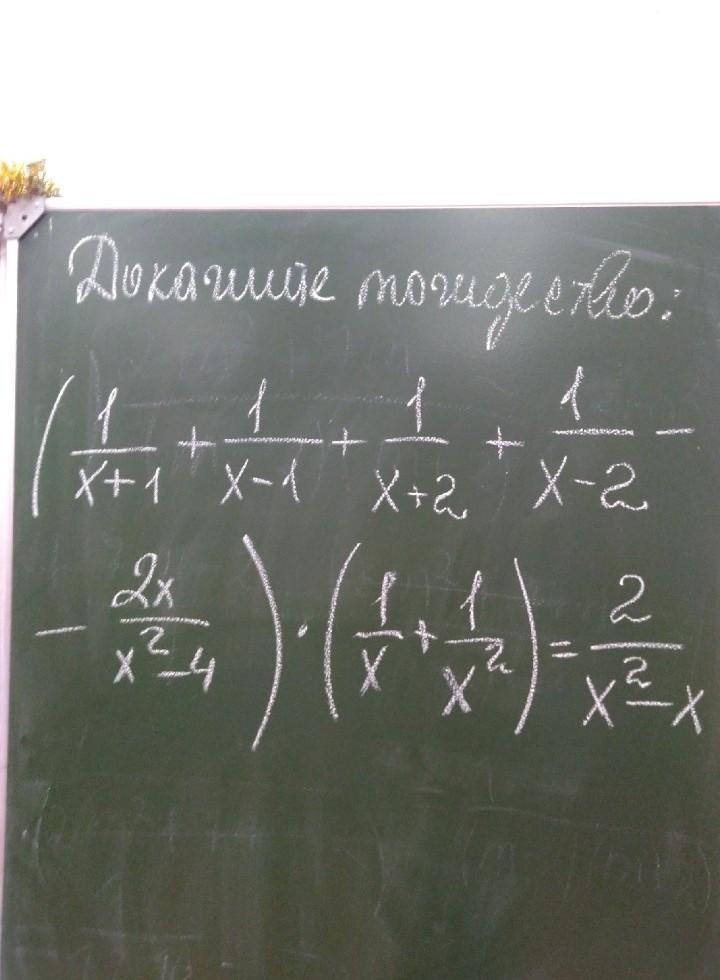 Докажите тождество:
(1/(x+1) + 1/(x-1) + 1/(x+2) + 1/(x-2) -
- 2x/(x²-4)) · (1/x + 1/x²) = 2/(x²-x)